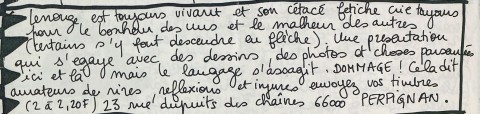 Lerouge est toujours vivant et son cétacé fétiche crie toujours
pour le bonheur des uns et le malheur des autres
(certains s'y font descendre en flèche). Une présentation
qui s'égaye avec des dessins, des photos et choses parsemées
ici et là mais le langage s'assagit. DOMMAGE ! Cela dit
amateurs de rires, reflexions et injures envoyez vos timbres
(2 à 2,20F) 23 rue du puits des chaînes 66000 PERPIGNAN.